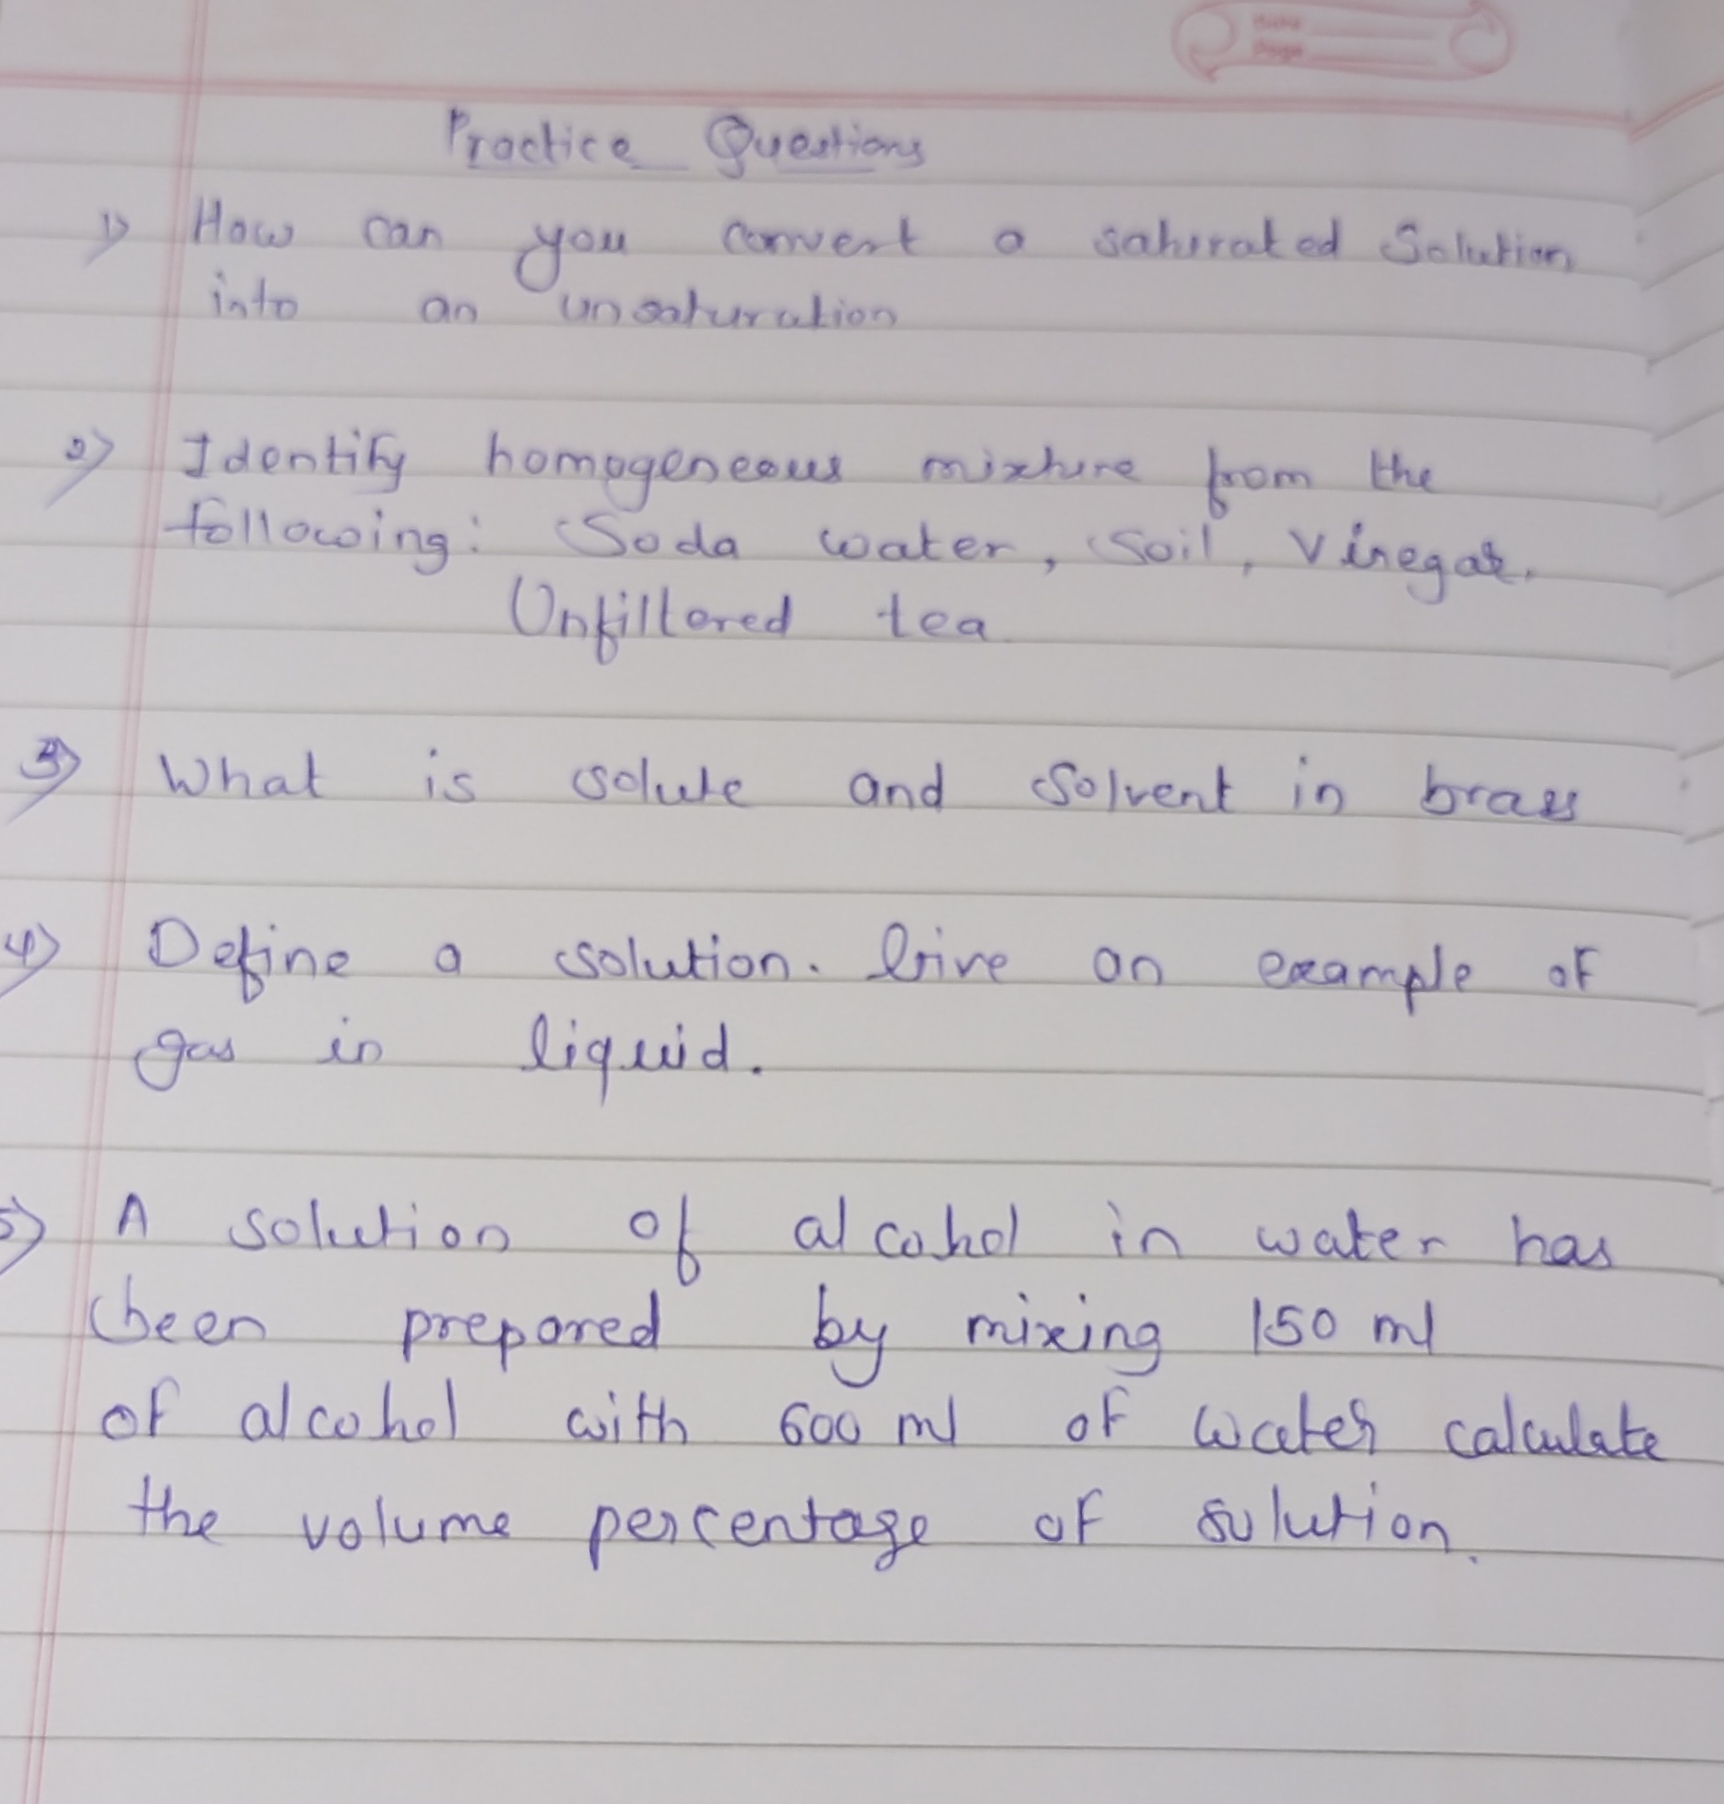 Practice Questions
1) How can you convert a saturated Solution
into an unsaturation
2) Identify homogeneous mixture from the
following: Soda water, Soil, Vinegar.
Unfiltered tea
3) What is solute and Solvent in brass
4) Define a solution. Give an example of
gas in liquid.
5) A solution of alcohol in water has
been prepared by mixing 150 ml
of alcohol with 600 ml of water calculate
the volume percentage of solution.